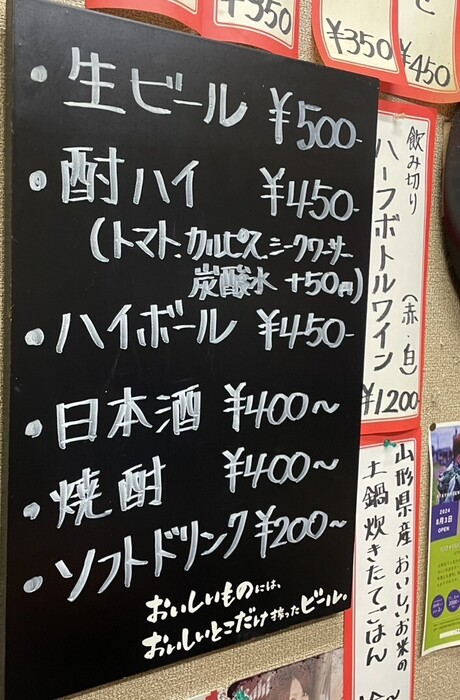 ・生ビール ¥500-
・酎ハイ ¥450-
(トマト.カルピス.シークワーサー
炭酸水 +50円)
・ハイボール ¥450-
・日本酒 ¥400〜
・焼酎 ¥400〜
・ソフトドリンク ¥200〜
おいしいものには、
おいしいとこだけ搾ったビール。
¥350
¥350
¥450
飲み切り
ハーフボトルワイン
(赤・白)
¥1200
山形県産 おいしいお米の
土鍋炊きたてごはん
2024
8月3日
OPEN